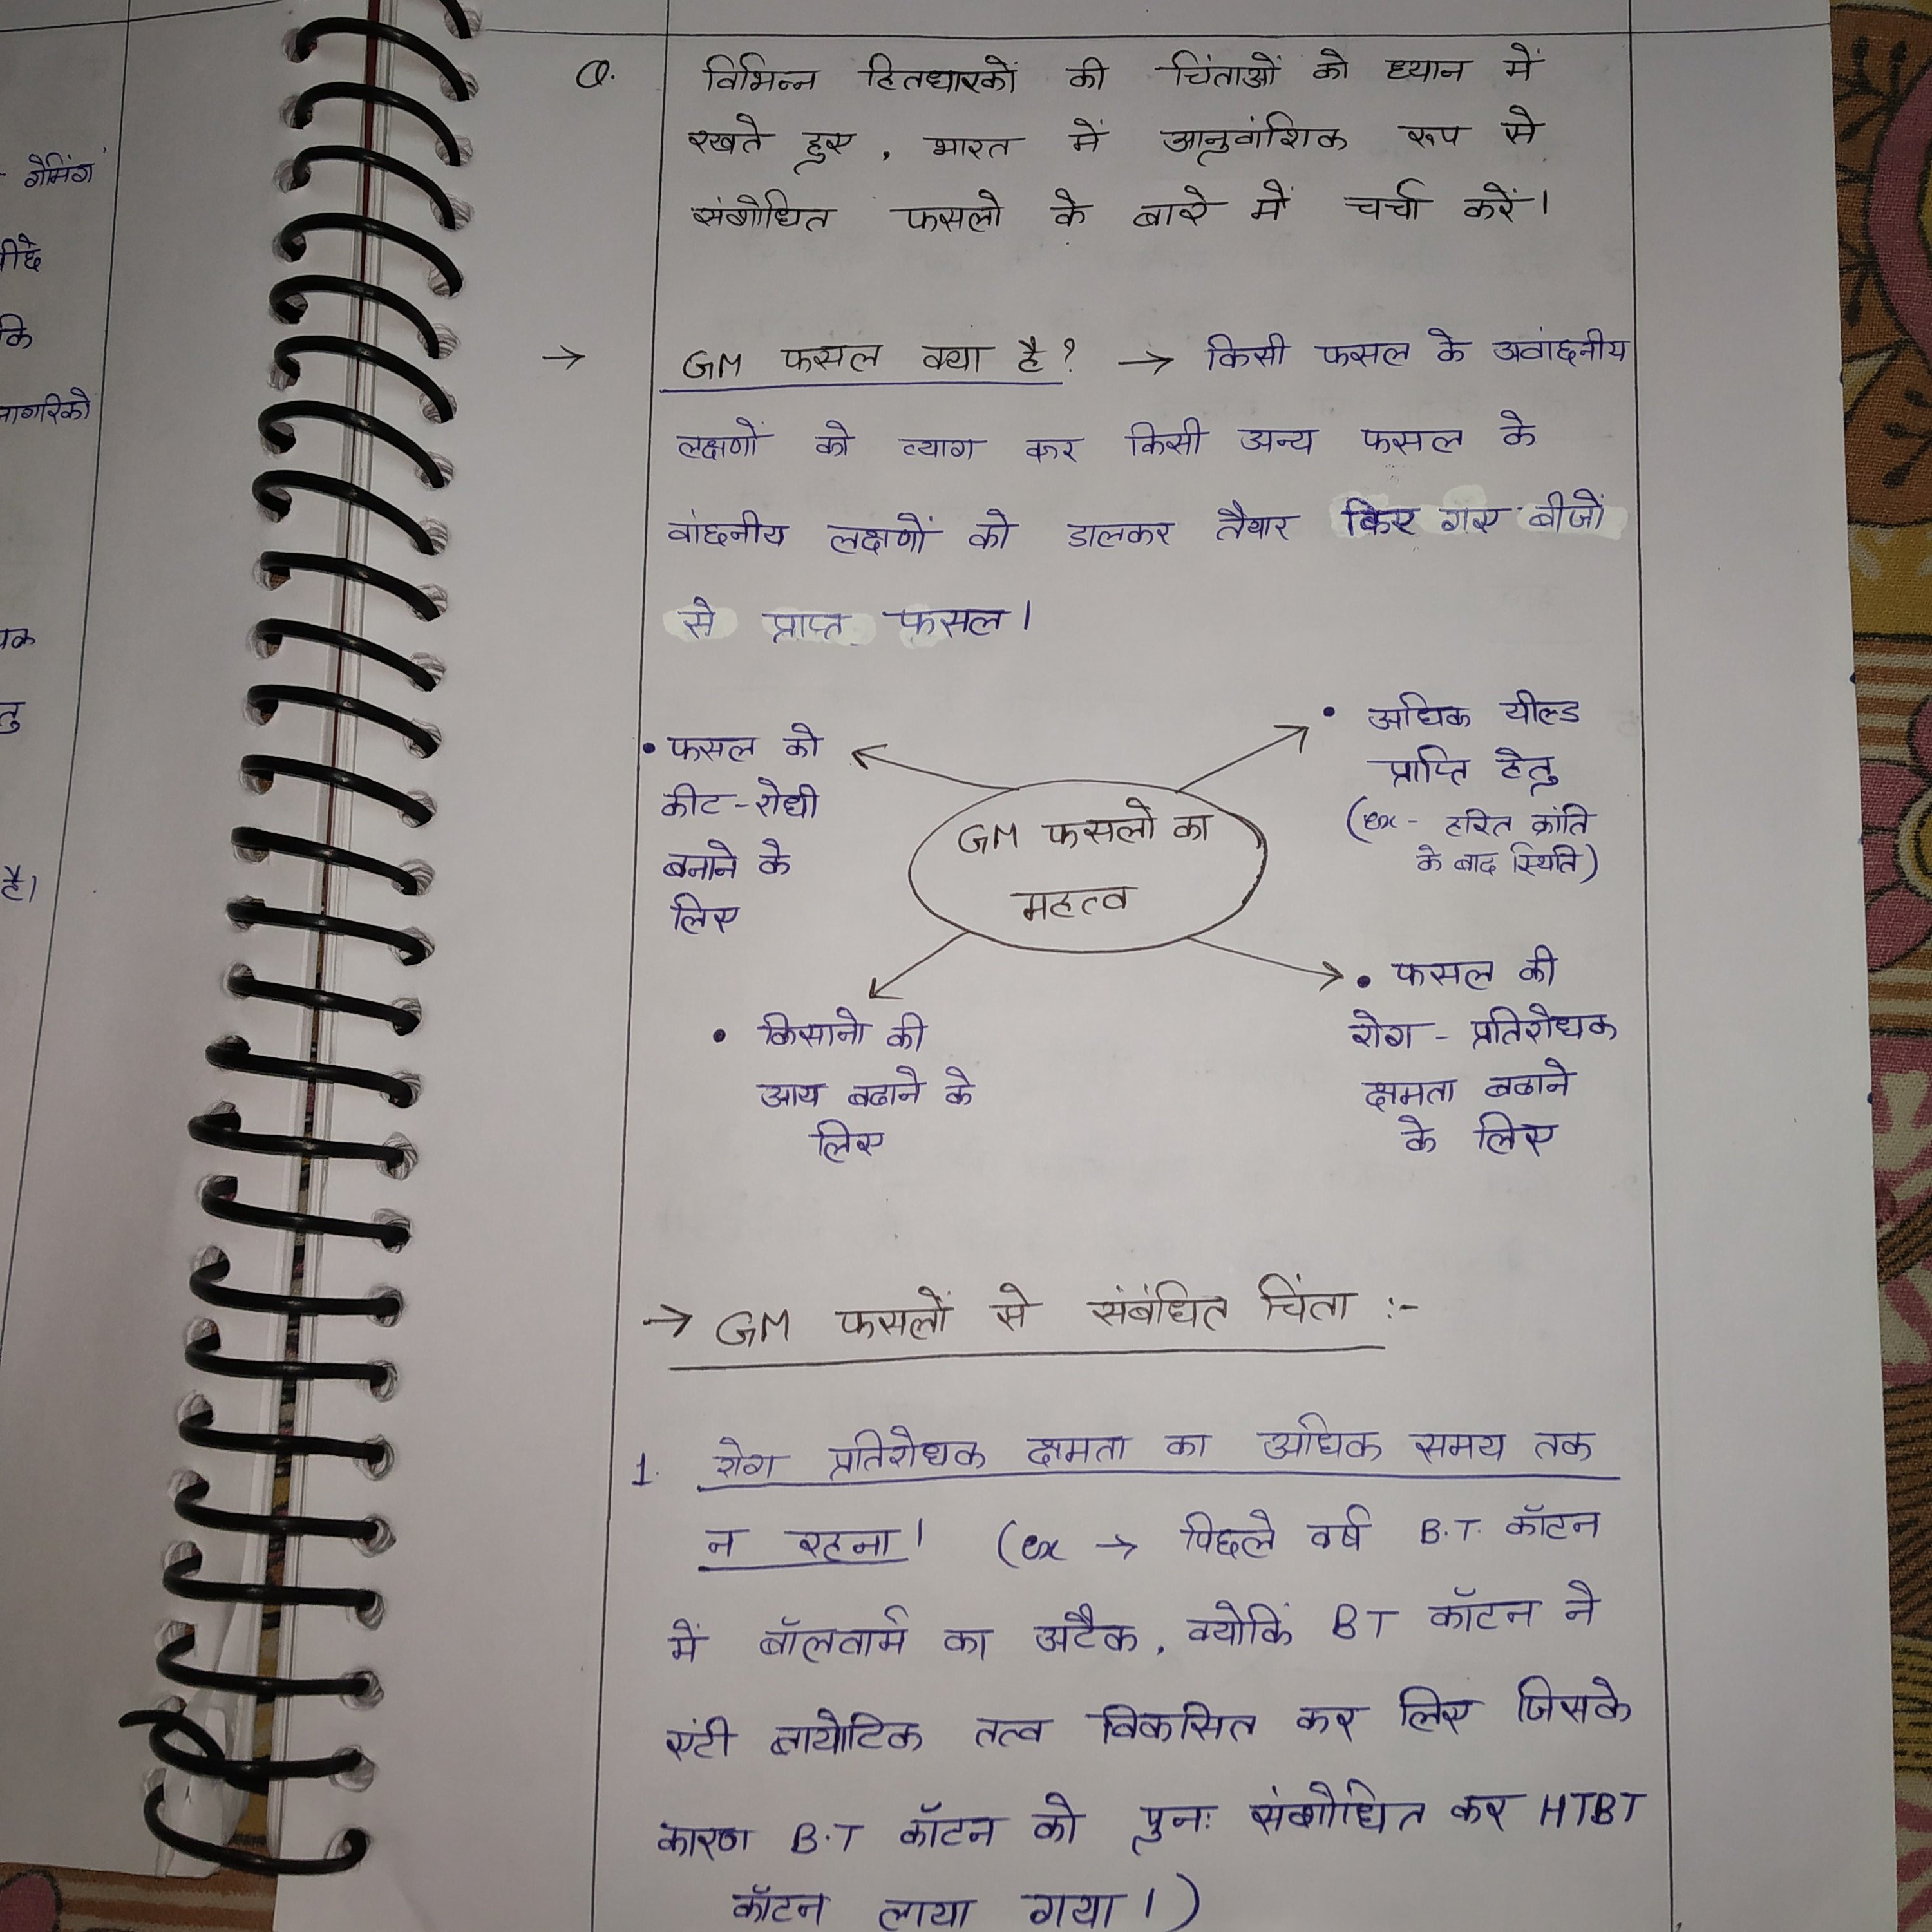 गेमिंग
पीछे
कि
नागरिको
तु
है।
Q. विभिन्न हितधारकों की चिंताओं को ध्यान में
रखते हुए, भारत में आनुवांशिक रूप से
संशोधित फसलो के बारे में चर्चा करें।
→ GM फसल क्या है? → किसी फसल के अवांछनीय
लक्षणों को त्याग कर किसी अन्य फसल के
वांछनीय लक्षणों को डालकर तैयार किए गए बीजों
से प्राप्त फसल।
• फसल को
कीट-रोधी
बनाने के
लिए
• अधिक यील्ड
प्राप्ति हेतु
(ex- हरित क्रांति
के बाद स्थिति)
GM फसलो का
महत्व
• किसानो की
आय बढाने के
लिए
• फसल की
रोग - प्रतिरोधक
क्षमता बढाने
के लिए
→ GM फसलों से संबंधित चिंता :-
1. रोग प्रतिरोधक क्षमता का अधिक समय तक
न रहना। (ex → पिछले वर्ष B.T. कॉटन
में बॉलवार्म का अटैक, क्योकिं BT कॉटन ने
एंटी बायोटिक तत्व विकसित कर लिए जिसके
कारण B.T कॉटन को पुनः संशोधित कर HTBT
कॉटन लाया गया।)